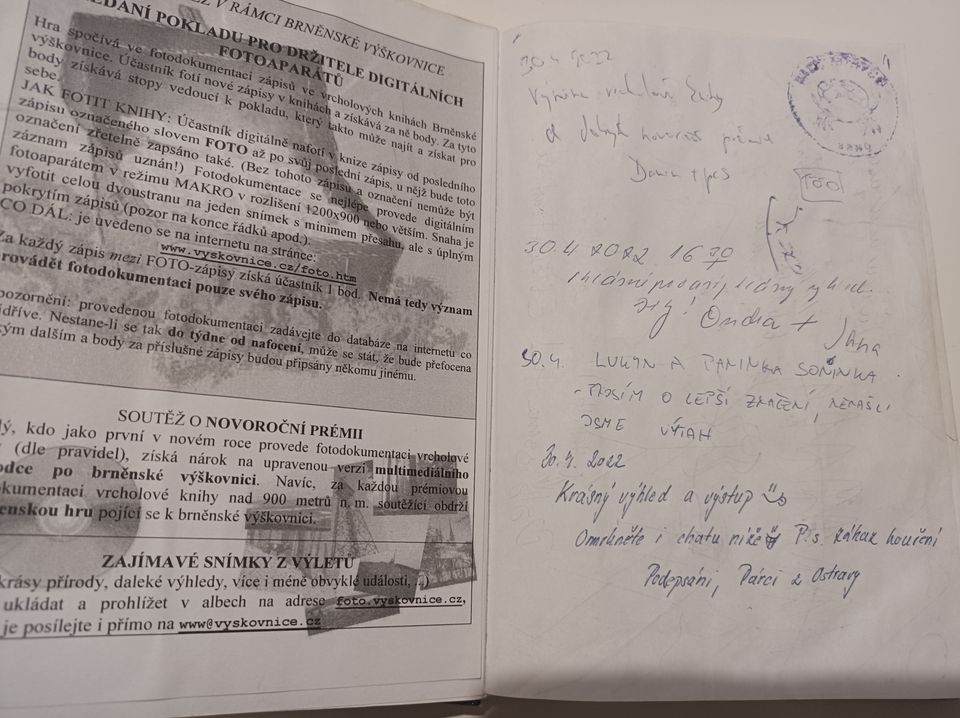 EZ V RÁMCI BRNĚNSKÉ VÝŠKOVNICE
EDÁNÍ POKLADU PRO DRŽITELE DIGITÁLNÍCH
FOTOAPARÁTŮ
Hra spočívá ve fotodokumentaci zápisů ve vrcholových knihách Brněnské
výškovnice. Účastník fotí nové zápisy v knihách a získává za ně body. Za tyto
body získává stopy vedoucí k pokladu, který takto může najít a získat pro
sebe.
JAK FOTIT KNIHY: Účastník digitálně nafotí v knize zápisy od posledního
zápisu označeného slovem FOTO až po svůj poslední zápis, u nějž bude toto
označení zřetelně zapsáno také. (Bez tohoto zápisu a označení nemůže být
záznam zápisů uznán!) Fotodokumentace se nejlépe provede digitálním
fotoaparátem v režimu MAKRO v rozlišení 1200x900 nebo větším. Snaha je
vyfotit celou dvoustranu na jeden snímek s minimem přesahu, ale s úplným
pokrytím zápisů (pozor na konce řádků apod.).
CO DÁL: je uvedeno se na internetu na stránce:
www.vyskovnice.cz/foto.htm
Za každý zápis mezi FOTO-zápisy získá účastník 1 bod. Nemá tedy význam
rovádět fotodokumentaci pouze svého zápisu.
pozornění: provedenou fotodokumentaci zadávejte do databáze na internetu co
jdříve. Nestane-li se tak do týdne od nafocení, může se stát, že bude přefocena
kým dalším a body za příslušné zápisy budou připsány někomu jinému.
SOUTĚŽ O NOVOROČNÍ PRÉMII
dý, kdo jako první v novém roce provede fotodokumentaci vrcholové
y (dle pravidel), získá nárok na upravenou verzi multimediálního
odce po brněnské výškovnici. Navíc, za každou prémiovou
okumentaci vrcholové knihy nad 900 metrů n. m. soutěžící obdrží
enskou hru pojící se k brněnské výškovnici.
ZAJÍMAVÉ SNÍMKY Z VÝLETŮ
krásy přírody, daleké výhledy, více i méně obvyklé události, ...)
ukládat a prohlížet v albech na adrese foto.vyskovnice.cz,
je posílejte i přímo na www@vyskovnice.cz
30.4 2022
Výměna vrcholové
FOTO
30.4 2022 16 30
Ondra +
Jana
30.4. LUKYN A PANINKA SONINKA
- PROSÍM O LEPŠÍ ZNAČENÍ, NENAŠLI
JSME VÝTAH
30.4.2022
Krásný výhled a výstup
Omrkněte i chatu níže P.s. zákaz kouření
Podepsáni, Párci z Ostravy